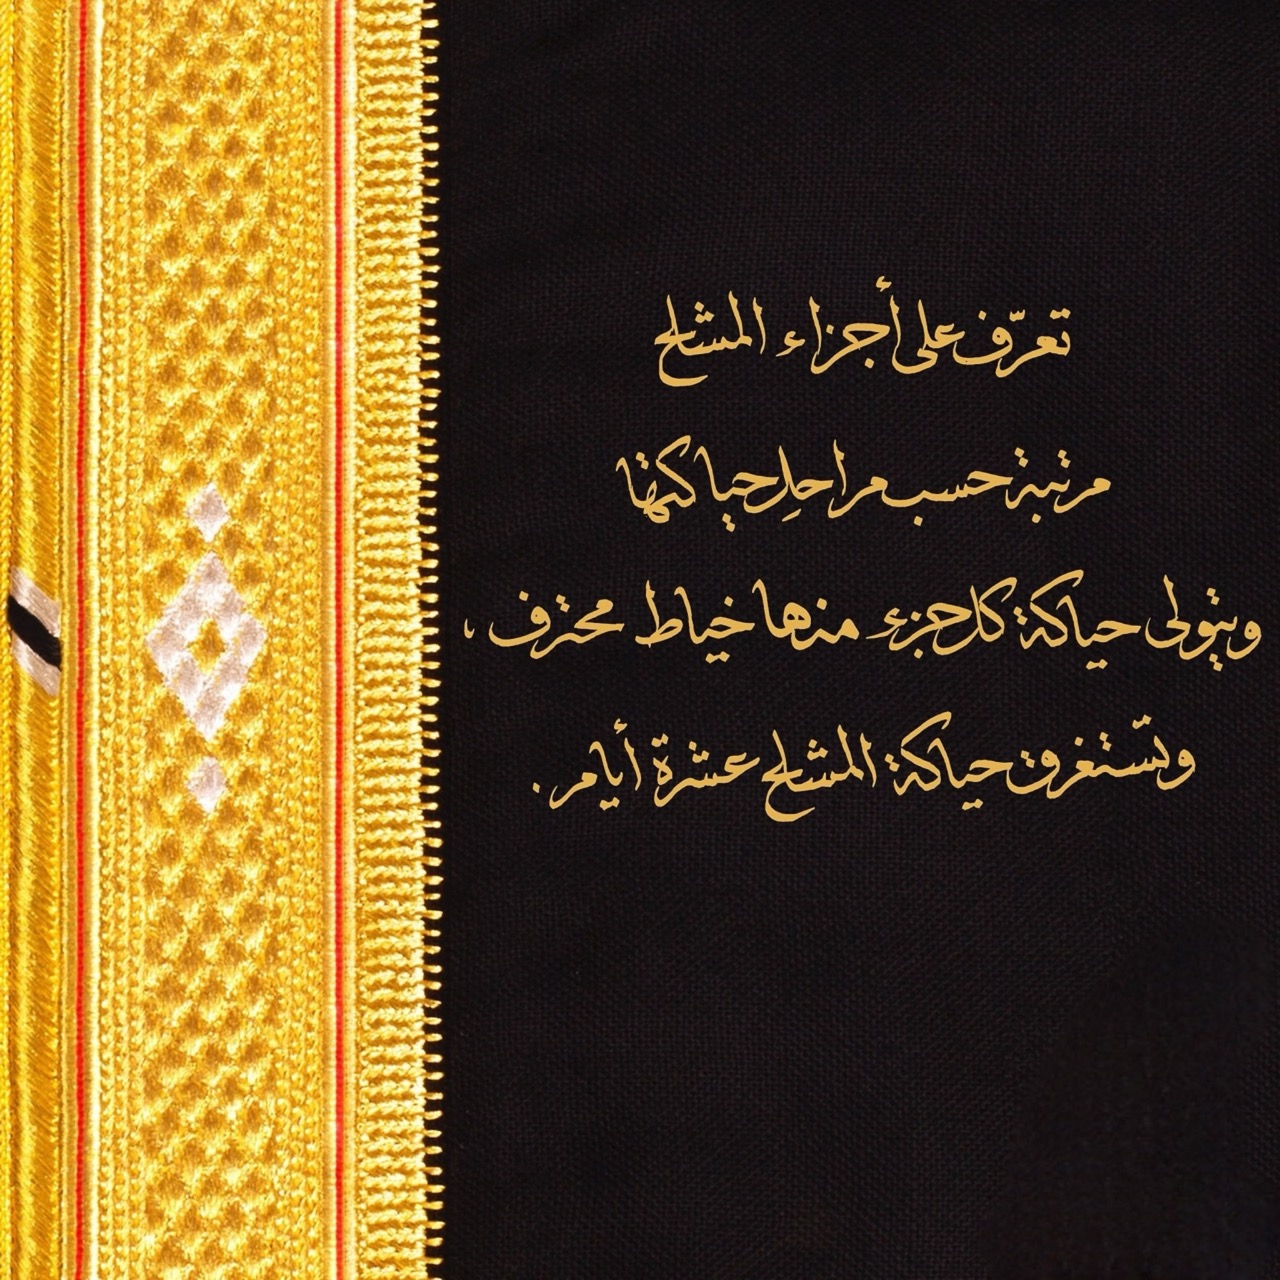 تعرّف على أجزاء المشلح
مرتبة حسب مراحلِ حياكتها
ويتولى حياكة كل جزء منها خياط محترف ،
وتستغرق حياكة المشلح عشرة أيام .